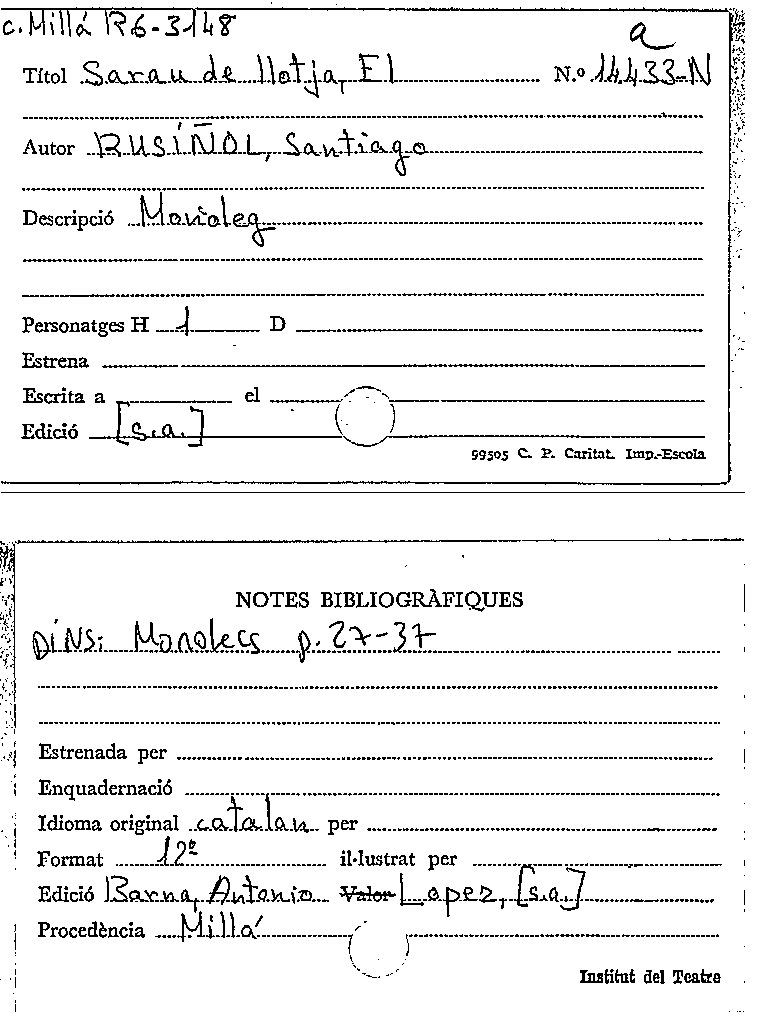 c. Millá R6-3148
a
Títol Sarau de llotja, El N.º 14433-N
Autor RUSIÑOL, Santiago
Descripció Monòleg
Personatges H 1 D
Estrena
Escrita a el
Edició [s.a.]
99505 C. P. Caritat. Imp.-Escola
NOTES BIBLIOGRÀFIQUES
DINS: Monolecs p. 27-37
Estrenada per
Enquadernació
Idioma original catalan per
Format 12º il·lustrat per
Edició Barna, Antonio Valor Lopez, [s.a.]
Procedència Millá
Institut del Teatre